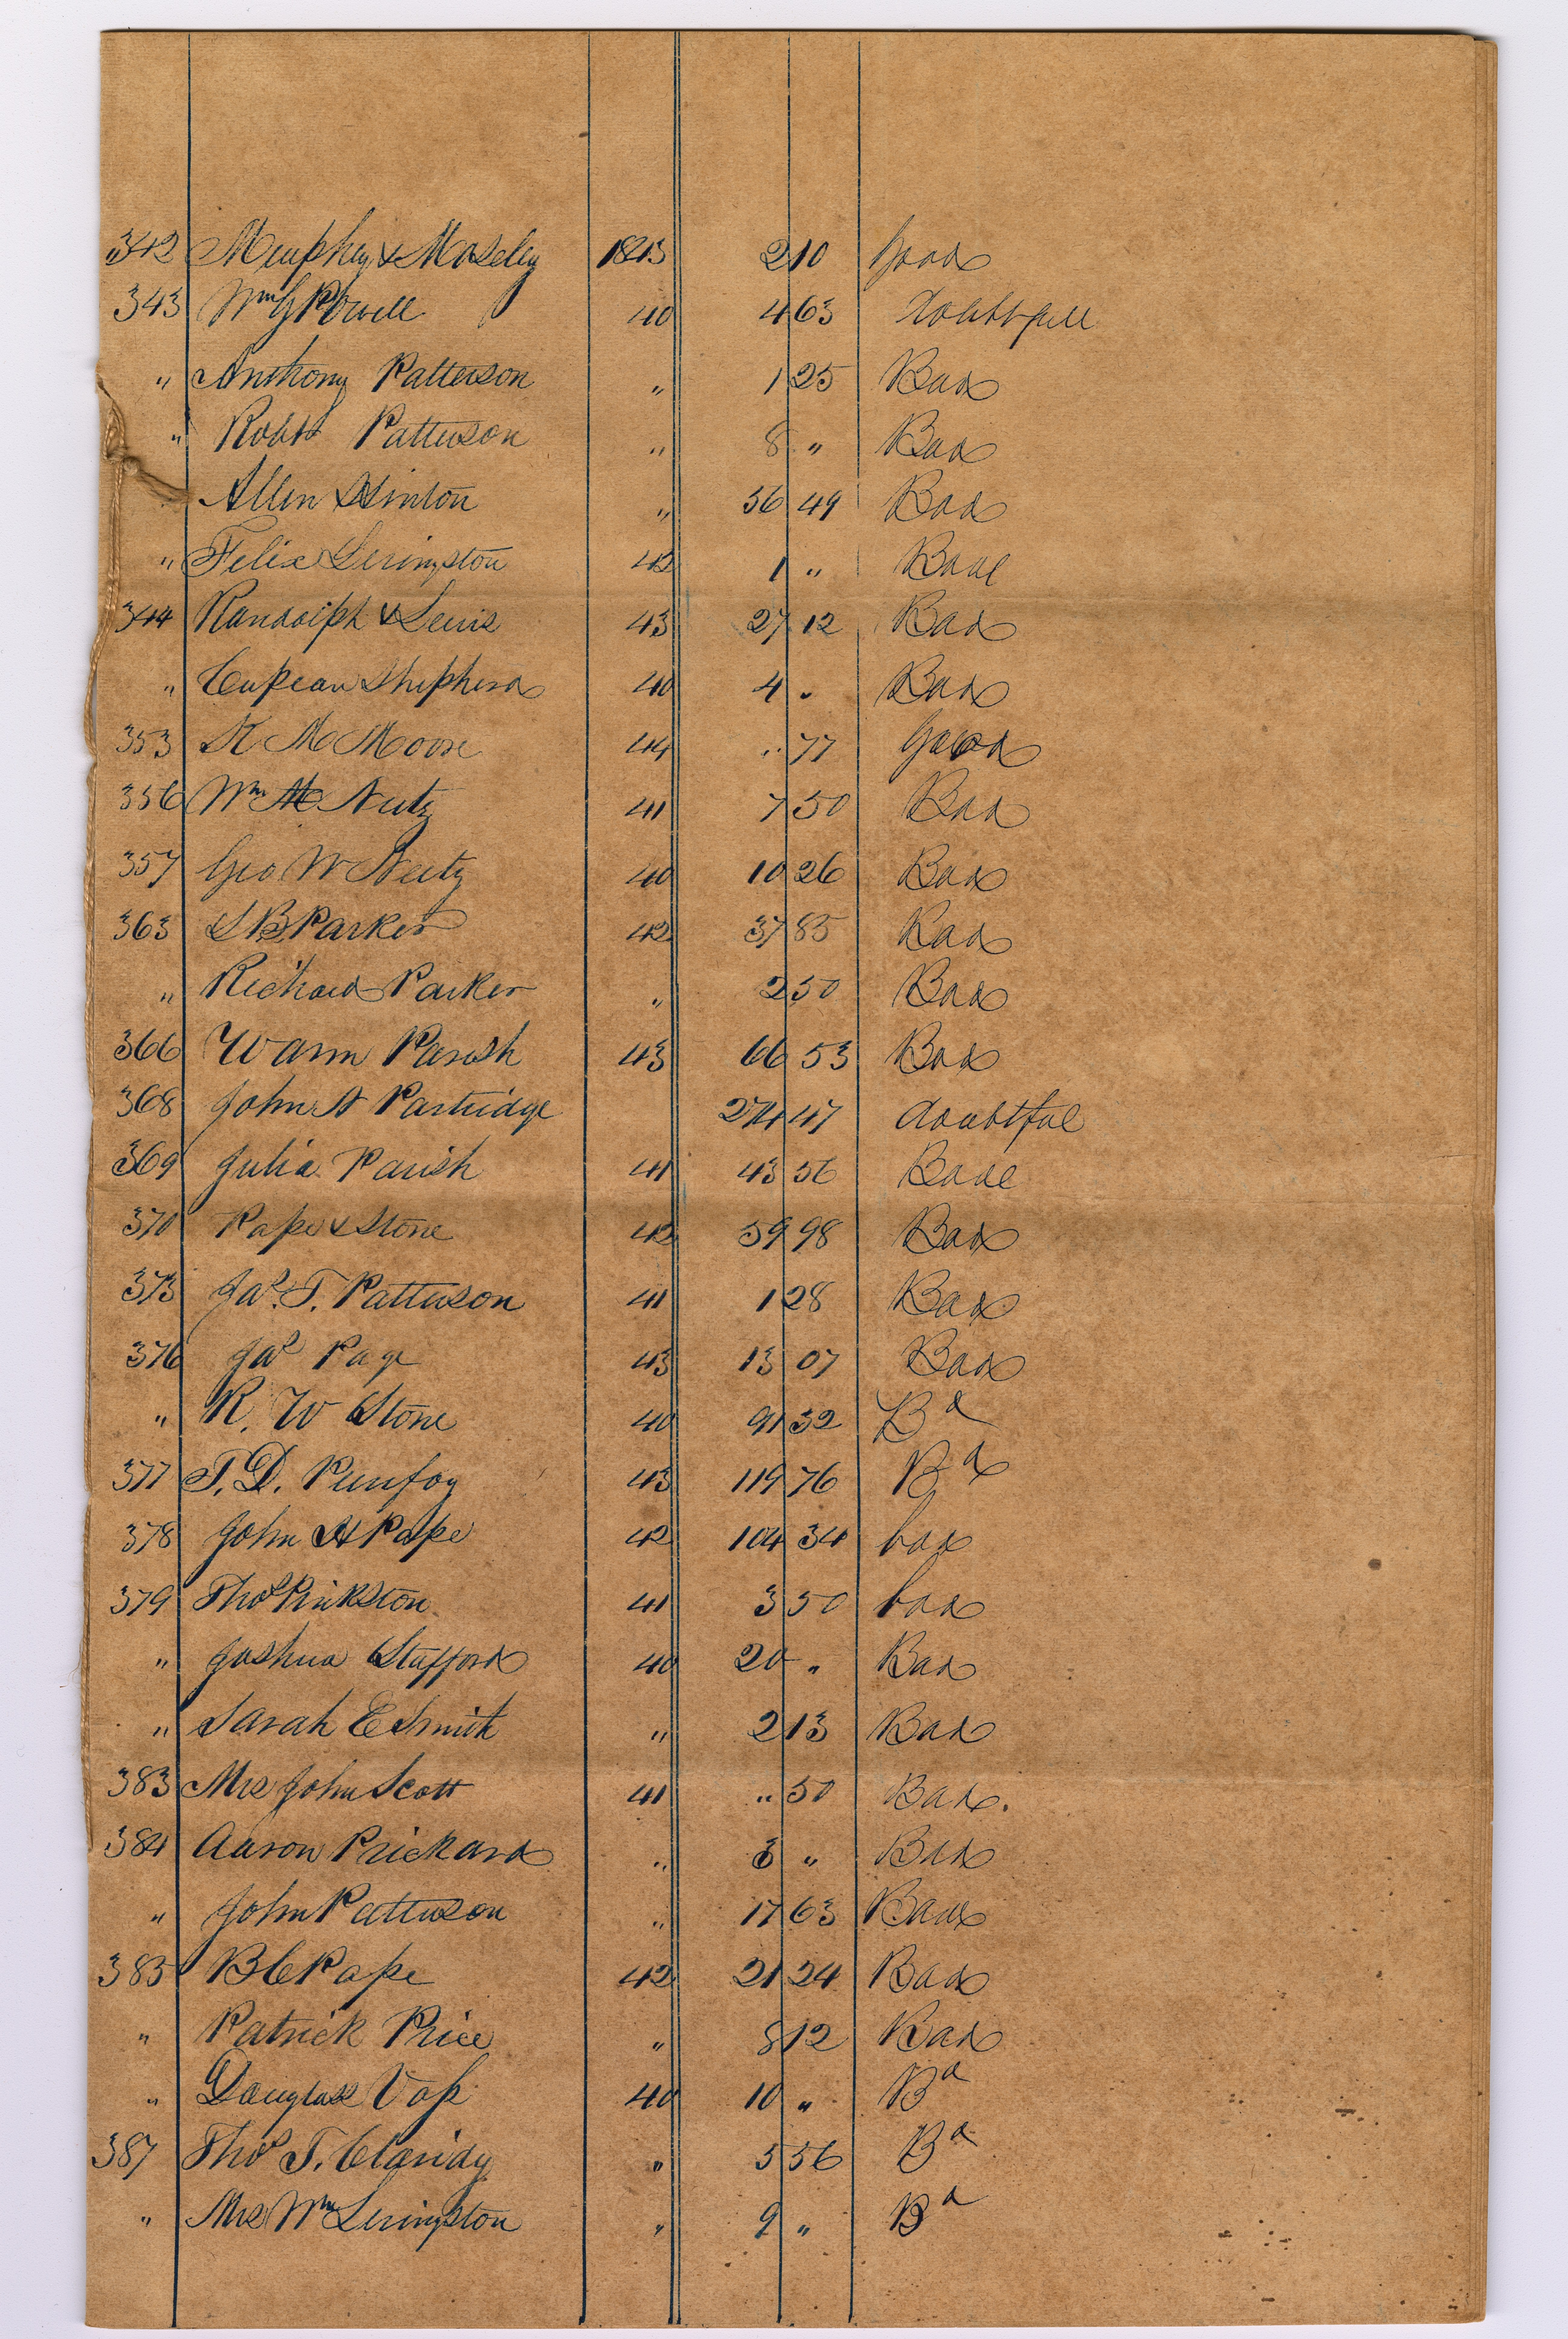 342 Murphey & Moseley 1843 2 10 Good
343 Wm G Powell 40 4 63 doubtfull
" Anthony Patterson " 1 25 Bad
" Robt Patterson " 8 " Bad
Allen Hinton " 56 49 Bad
" Felix Livingston 42 1 " Bad
344 Randolph & Lewis 43 27 12 Bad
" Shepherd 40 4 " Bad
353 K M Moore 44 " 77 Good
356 Wm M Nutz 41 7 50 Bad
357 Geo W Nutz 40 10 26 Bad
363 S B Parker 42 37 85 Bad
" Richard Parker " 2 50 Bad
366 Warm Parish 43 66 53 Bad
368 John A Partridge 274 47 doubtful
369 Julia Parish 41 43 56 Bad
370 Pape & Stone 42 59 98 Bad
373 Jas. T. Patterson 41 1 28 Bad
376 Jas Page 43 13 07 Bad
" R. W Stone 40 91 32 Bd
377 T. D. Purifoy 43 119 76 Bd
378 John H Pope 42 104 34 bad
379 Thos Pinkston 41 3 50 bad
" Joshua Stafford 40 20 " Bad
" Sarah E Smith " 2 13 Bad
383 Mrs John Scott 41 " 50 Bad.
384 Aaron Prickard " 3 " Bad
" John Patterson " 17 63 Bad
385 B C Pape 42 21 24 Bad
" Patrick Price " 8 12 Bad
" Douglass Vap 40 10 " Bd
387 Thos T. Claridy " 5 56 Bd
" Mrs Wm Livingston " 9 " Bd